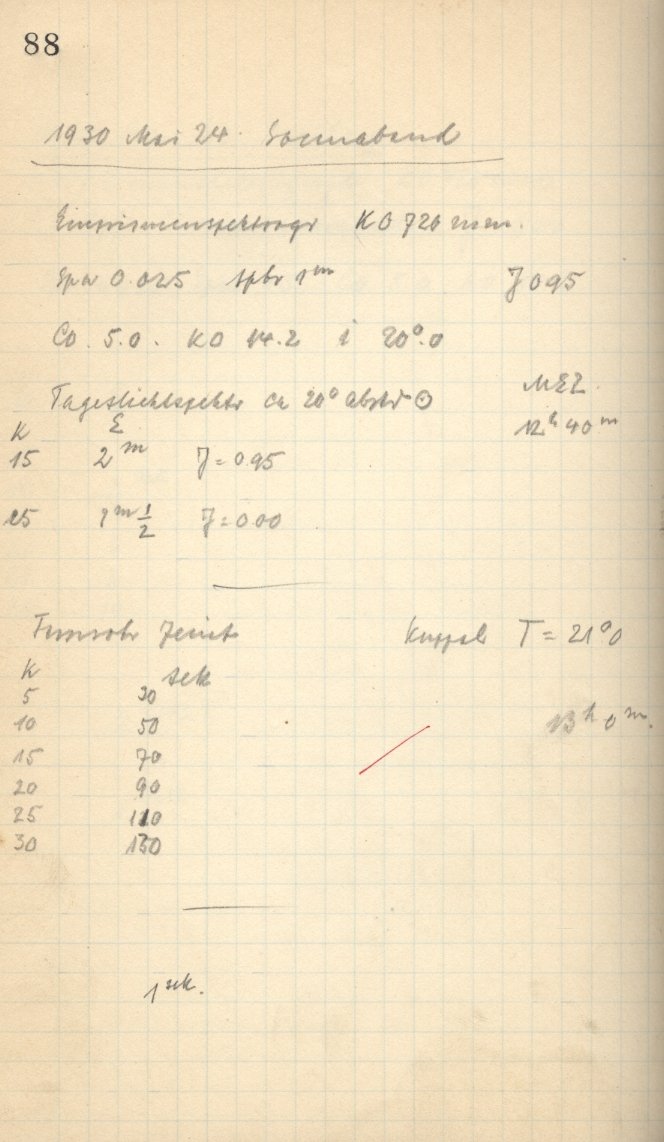 88
1930 Mai 24. Sonnabend
Einprismenspektrogr KO 720 mm.
Spw 0.025 1mm J 095
Co. 5.0. KO 14.2 i 20°.0
Tageslichtspektr ca 20° Abstd ☉ MEZ.
K E 12h 40m
15 2m J = 0.95
25 1m 1/2 J = 0.00
Fernrohr Zenit Kuppel T = 21°0
K sek
5 30
10 50 13h 0m.
15 70
20 90
25 110
30 130
1 sek.